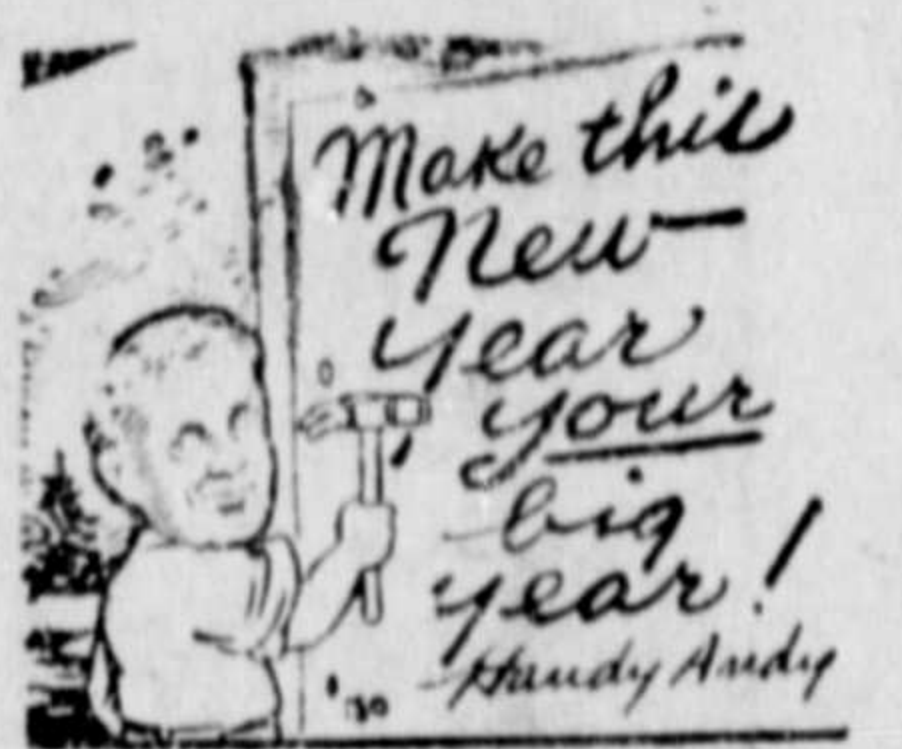 Make this
New
Year
your
big
year!
Handy Andy